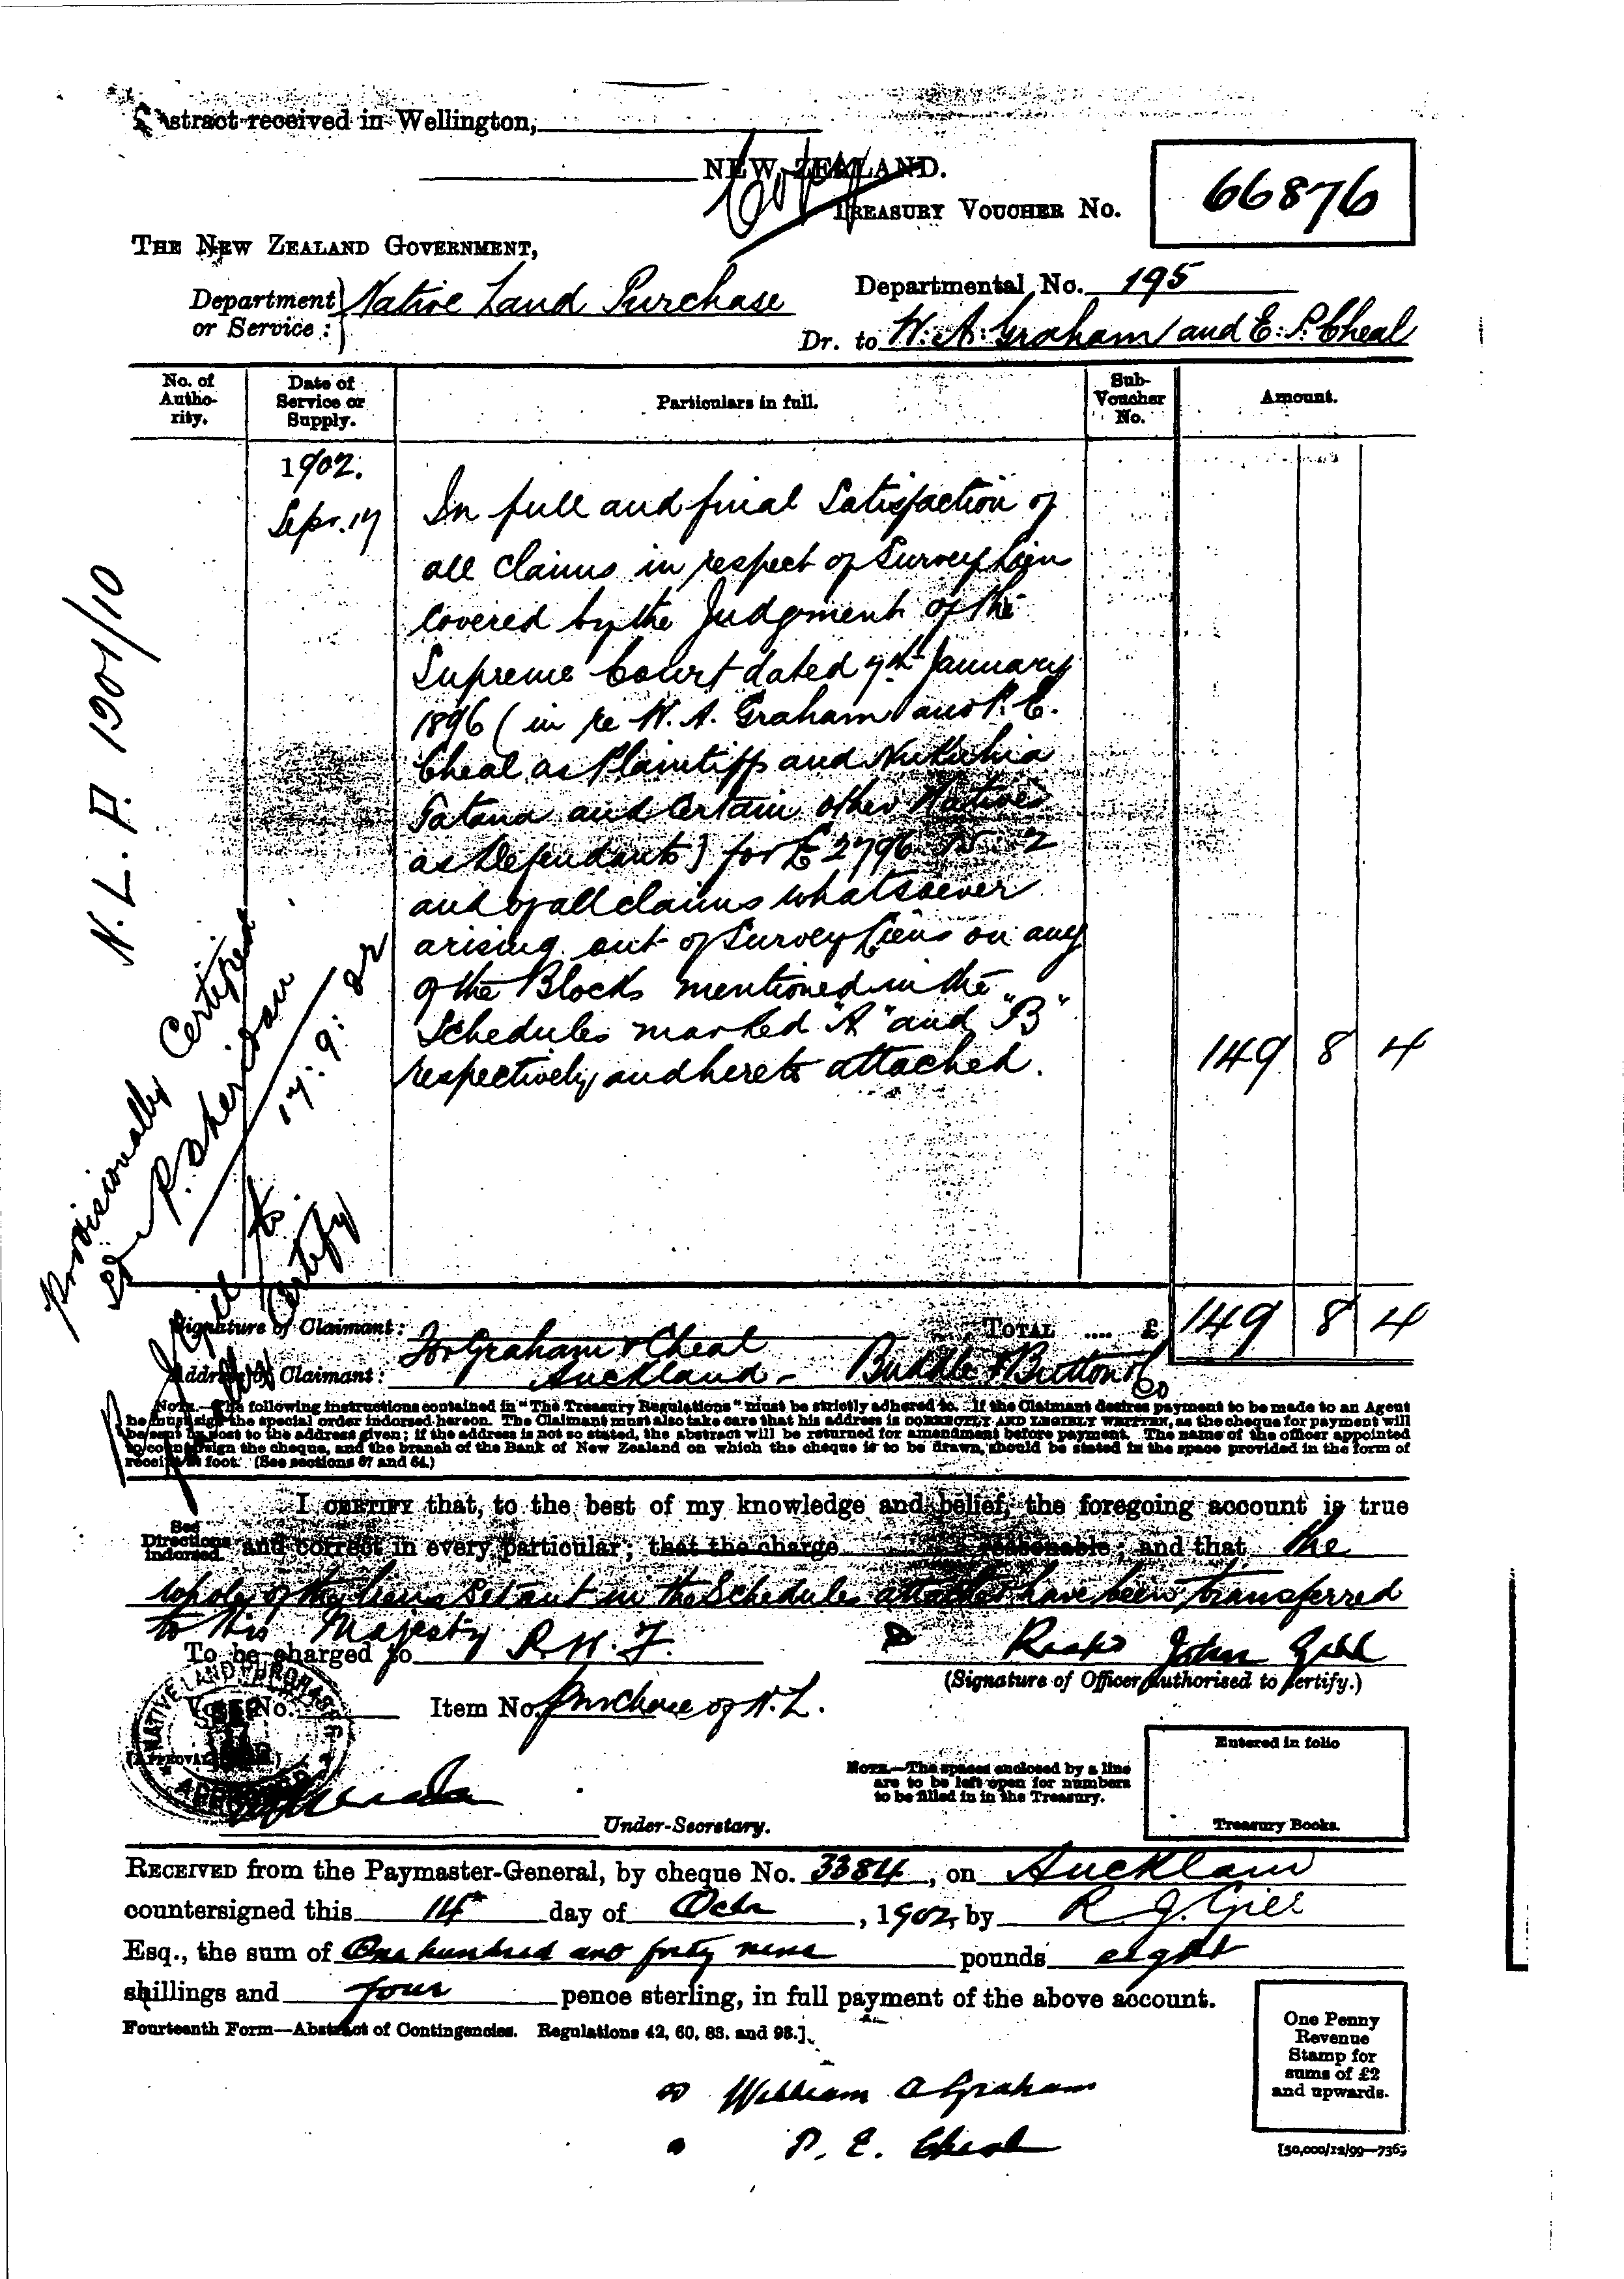 Abstract received in Wellington,
Copy
NEW ZEALAND.
TREASURY VOUCHER No. 66876
THE NEW ZEALAND GOVERNMENT,
Department or Service: Native Land Purchase
Departmental No. 195
Dr. to W. A. Graham and E. P. Cheal
No. of Authority. Date of Service or Supply. Particulars in full. Sub-Voucher No. Amount.
1902.
Sepr. 17
In full and final Satisfaction of
all claims in respect of Survey Lien
covered by the Judgment of the
Supreme Court dated 7th January
1896 (in re W. A. Graham and P. E.
Cheal as Plaintiffs and
and certain other Natives
as Defendants) for £2796
and of all claims whatsoever
arising out of Survey Liens on any
of the Blocks mentioned in the
Schedules marked "A" and "B"
respectively and hereto attached. 149 8 4
N. L. P. 1901/10
Provisionally Certified
P. Sheridan
17:9:02
to
Certify
Signature of Claimant: For Graham & Cheal
TOTAL .... £ 149 8 4
Address of Claimant: Auckland - Buddle & Button Co
NOTE.—The following instructions contained in "The Treasury Regulations" must be strictly adhered to. If the Claimant desires payment to be made to an Agent
he must sign the special order indorsed hereon. The Claimant must also take care that his address is CORRECTLY AND LEGIBLY WRITTEN, as the cheque for payment will
be sent by post to the address given; if the address is not so stated, the abstract will be returned for amendment before payment. The name of the officer appointed
to countersign the cheque, and the branch of the Bank of New Zealand on which the cheque is to be drawn, should be stated in the space provided in the form of
receipt at foot. (See sections 67 and 64.)
I CERTIFY that, to the best of my knowledge and belief, the foregoing account is true
See Directions indorsed. and correct in every particular; that the charge reasonable; and that the
whole of the liens set out in the Schedules attached have been transferred
to His Majesty
To be charged to
John Gill
(Signature of Officer authorised to certify.)
NATIVE LAND PURCHASE
Vote No. Item No. Purchase of N. L.
APPROVED
Under-Secretary.
NOTE.—The spaces enclosed by a line
are to be left open for numbers
to be filled in in the Treasury.
Entered in folio
Treasury Books.
RECEIVED from the Paymaster-General, by cheque No. 3384, on Auckland
countersigned this 14th day of Octr, 1902, by R. J. Gill
Esq., the sum of One hundred and forty nine pounds eight
shillings and four pence sterling, in full payment of the above account.
Fourteenth Form—Abstract of Contingencies. Regulations 42, 60, 83, and 98.]
One Penny
Revenue
Stamp for
sums of £2
and upwards.
William A Graham
P. E. Cheal
[50,000/12/99—736]